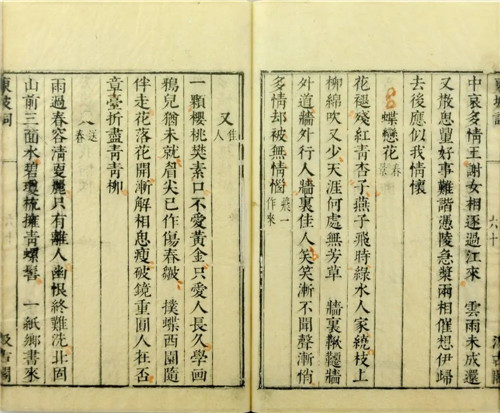 中哀多情王謝女相逐過江來 雲雨未成還
又散思量好事難諧憑陵急槳兩相催想伊歸
去後應似我情懷
蝶戀花 春景
花褪殘紅青杏子燕子飛時綠水人家繞枝上
柳綿吹又少天涯何處無芳草 牆裏鞦韆牆
外道牆外行人牆裏佳人笑笑漸不聞聲漸俏
多情却被無情惱 飛一作來
又 佳人
一顆櫻桃樊素口不愛黃金只愛人長久學畫
鴉兒猶未就眉尖已作傷春皺 撲蝶西園隨
伴走花落花開漸解相思瘦破鏡重圓人在否
章臺折盡青青柳
又 送春
雨過春容清更麗只有離人幽恨終難洗北固
山前三面水碧瓊梳擁青螺髻 一紙鄉書來
東坡詞 六十 汲古閣